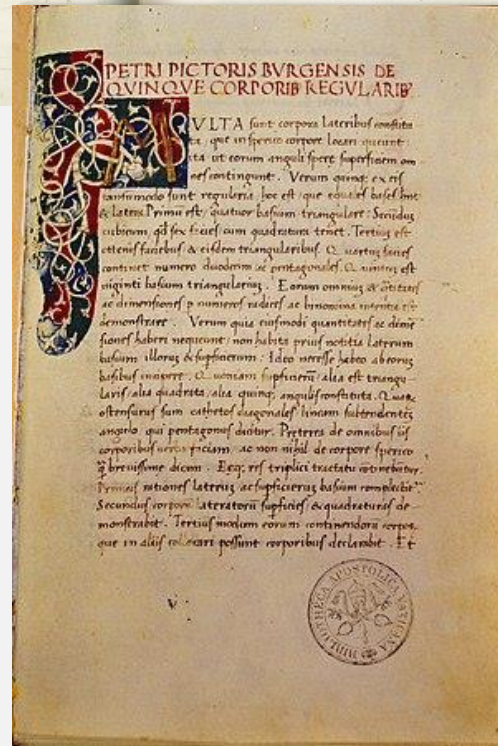 PETRI PICTORIS BVRGENSIS DE
QVINQVE CORPORIB REGVLARIB
MVLTA sunt corpora lateribus constitu
ta, que in sperico corpore locari queunt:
ita ut eorum anguli spere superficiem om
nes contingunt. Verum quinq; ex eis
tantummodo sunt regularia, hoc est, que equales bases hnt
& latera. Primum est, quatuor basium triangulare: Secundus
cubicum, qd sex facies cum quadratura tenet. Tertius est
octonis faciebus & eisdem triangularibus. Quartus facies
continet numero duodecim ac pentagonales. Quintus est
viginti basium triangularius. Eorum omnius & quitates
ac dimensiones p numeros radices ac binomina intentio est
demonstrare. Verum quia eiusmodi quantitates ac dimē
siones haberi nequeunt, non habita prius notitia laterum
basium illorus & supficierum: Ideo necesse habeo ab eorus
basibus incipere. Quoniam supficierū alia est triangu
laris, alia quadrata, alia quinq; angulis constituta. Quare
ostensurus sum cathetos diagonales lineam subtendentes
angulo, qui pentagonus dicitur. Preterea de omnibus iis
corporibus verba faciam, ac non nihil de corpore sperico
q̄ brevissime dicam. Ecq; res triplici tractatu cotinebitur.
Primus rationes laterus ac supficierus basium complectit
Secundus corporū lateratorū supficies, & quadraturas de
monstrabit. Tertius modum eorum continendorū corpor,
que in aliis collocari possunt corporibus declarabit. Et
BIBLIOTHECA APOSTOLICA VATICANA